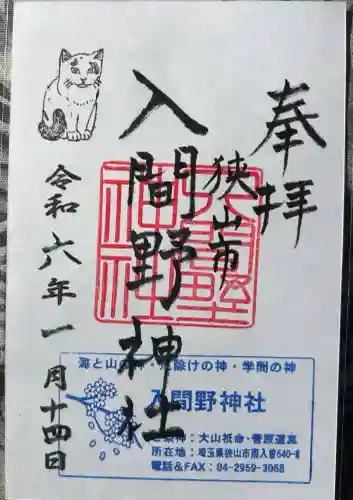 奉拝
狭山市
入間野神社
令和六年一月十四日
海と山
除けの神・学問の神
入間野神社
神：大山祇命・菅原道真
所在地：埼玉県狭山市南入曽640-
電話＆FAX：04-2959-3068